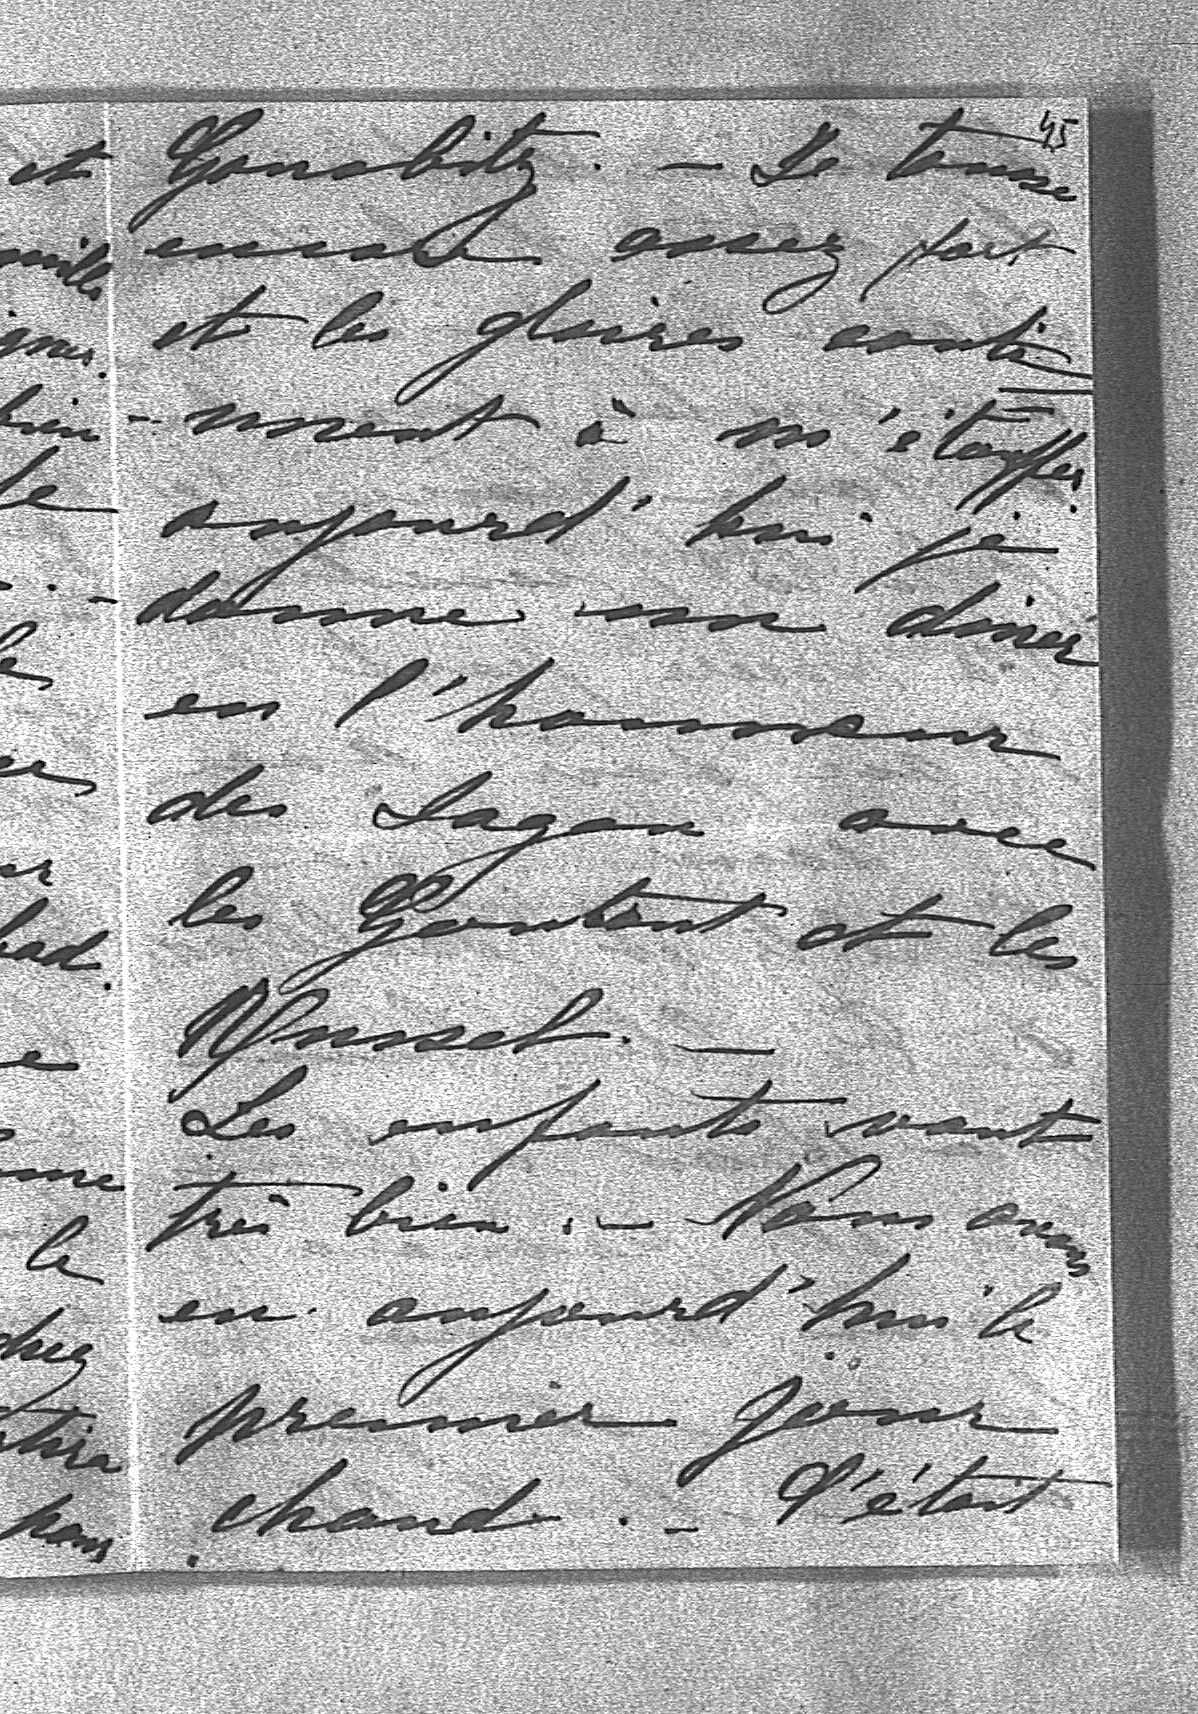 45
Gonobitz. — Je tousse
encore assez fort
et les glaires conti
- nuent à m'étouffer.
aujourd'hui je
donne un diner
en l'honneur
des Lagan avec
les Gontard et les
Musset. —
Les enfants vont
très bien. — Nous avons
eu aujourd'hui le
premier jour
chaud. — C'était